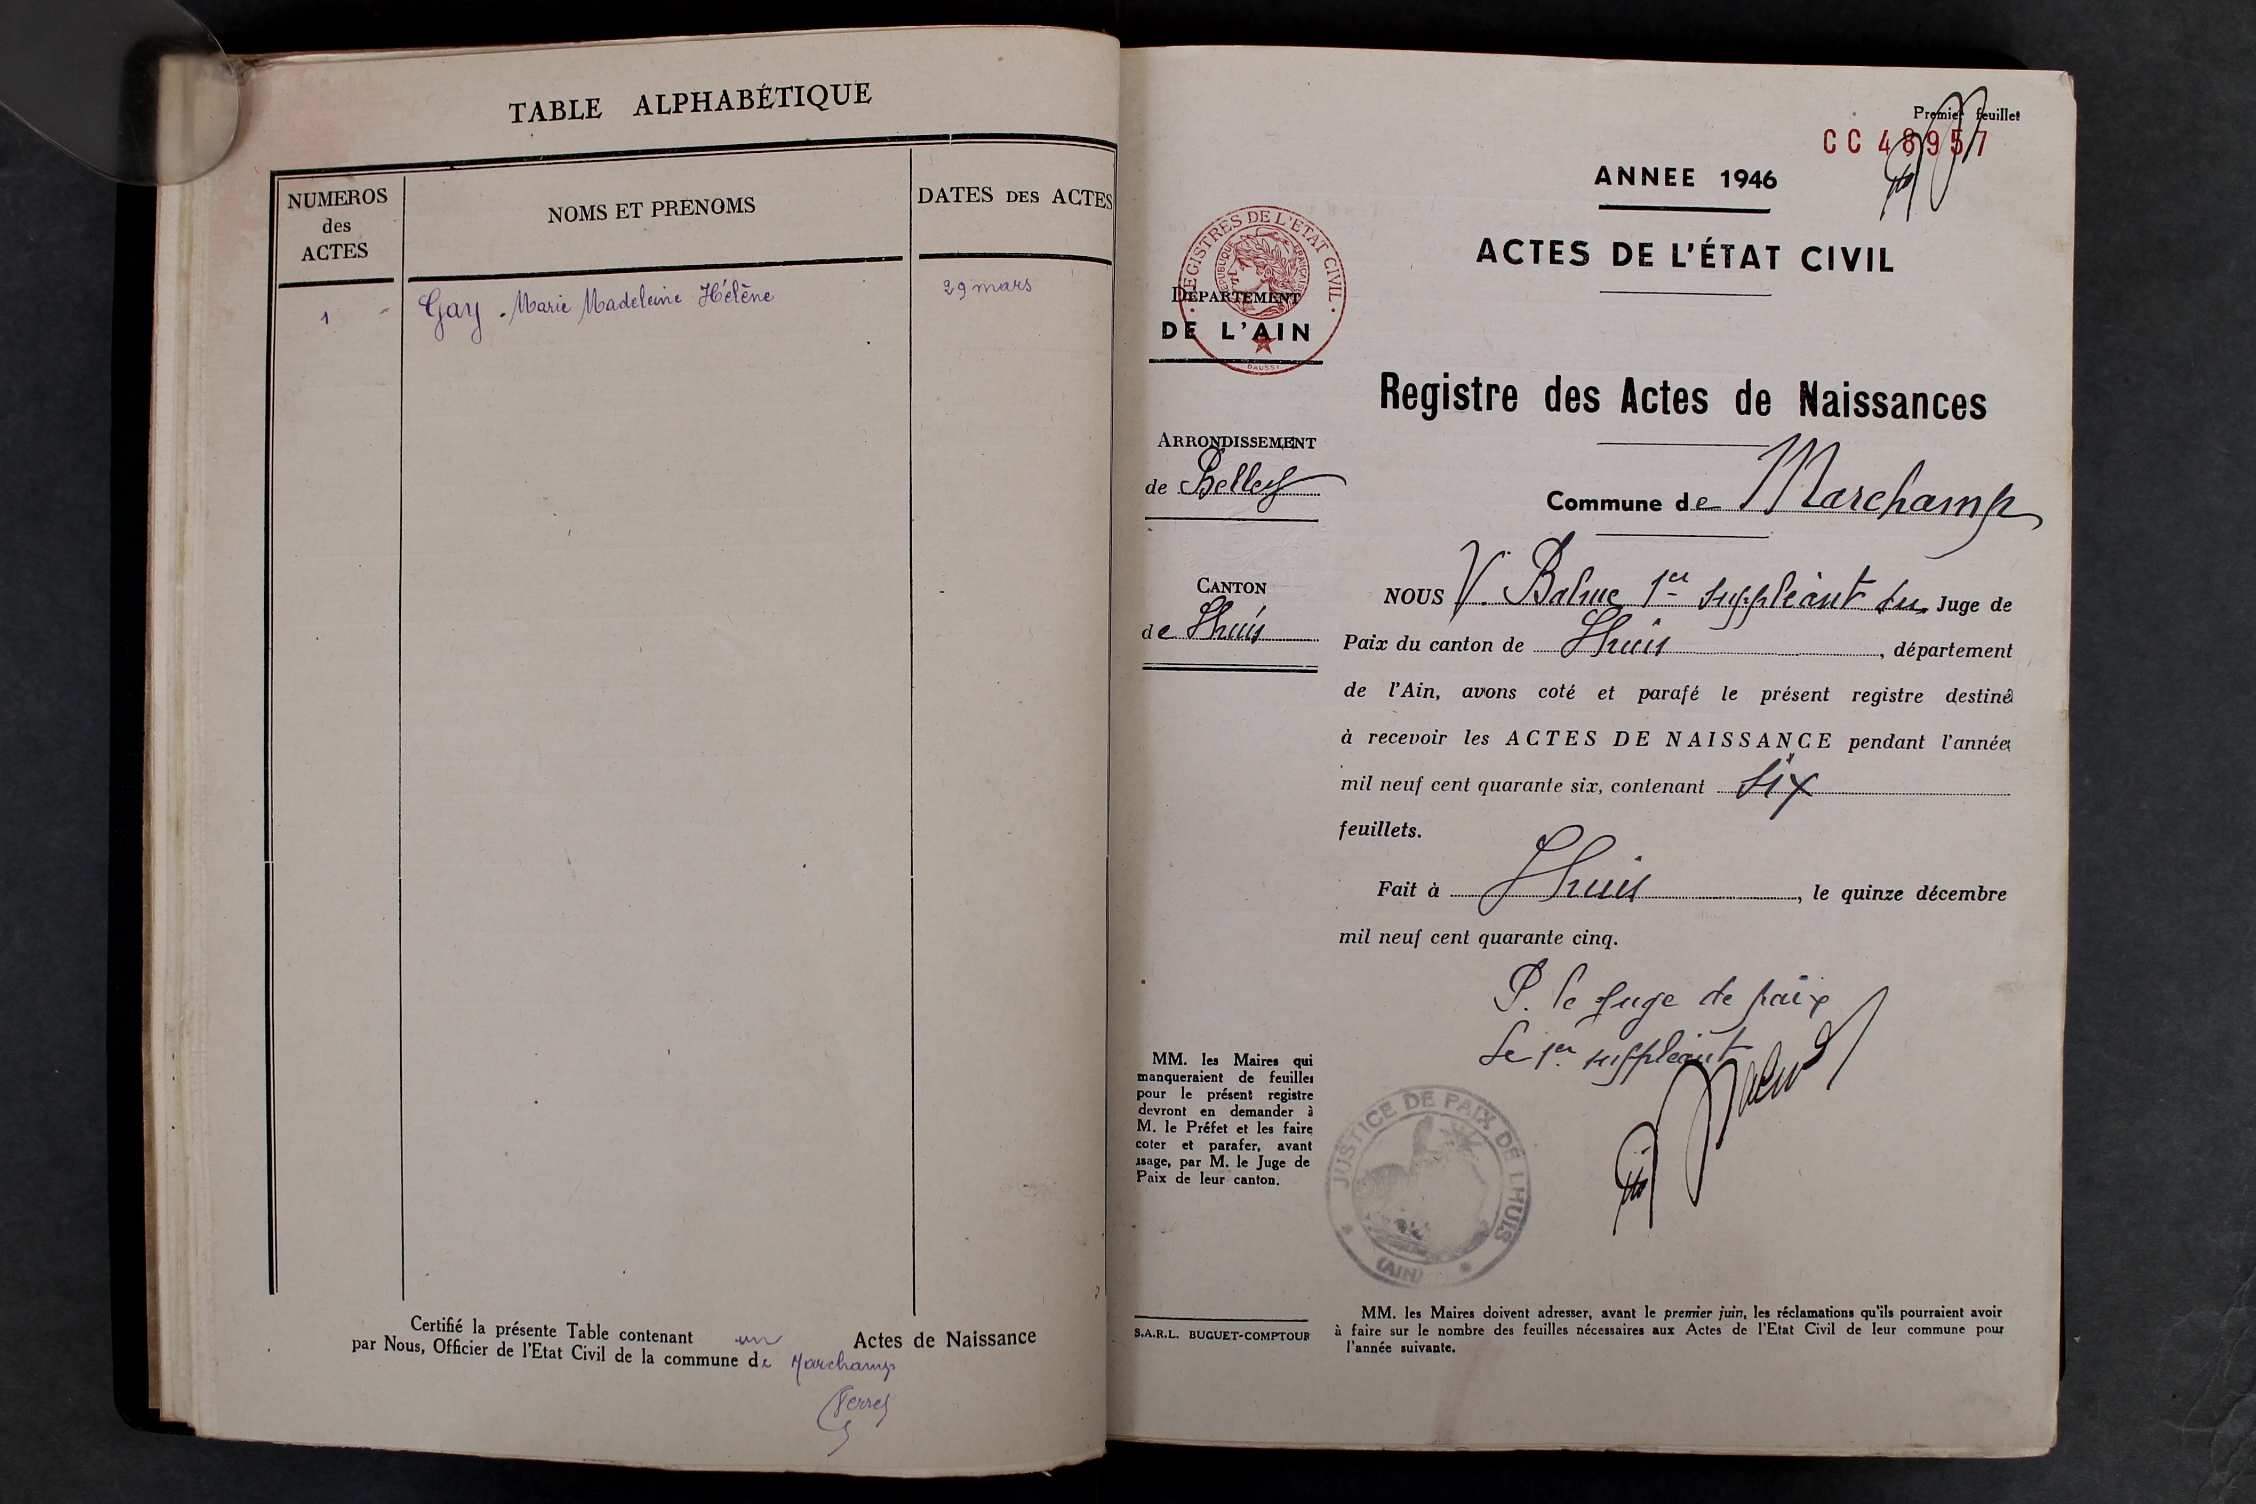 TABLE ALPHABÉTIQUE
NUMEROS
des
ACTES
NOMS ET PRÉNOMS
DATES DES ACTES
1
Gay Marie Madeleine Hélène
29 mars
Certifié la présente Table contenant un Actes de Naissance
par Nous, Officier de l'Etat Civil de la commune de Marchamp
Premier feuillet
CC 48957
ANNEE 1946
ACTES DE L'ÉTAT CIVIL
REGISTRES DE L'ETAT CIVIL
REPUBLIQUE FRANÇAISE
DÉPARTEMENT
DE L'AIN
Registre des Actes de Naissances
ARRONDISSEMENT
de Belley
Commune de Marchamp
CANTON
de Lhuis
NOUS V. Balme 1er suppléant du Juge de
Paix du canton de Lhuis, département
de l'Ain, avons coté et parafé le présent registre destiné
à recevoir les ACTES DE NAISSANCE pendant l'année
mil neuf cent quarante six, contenant six
feuillets.
Fait à Lhuis, le quinze décembre
mil neuf cent quarante cinq.
P. le Juge de paix
Le 1er suppléant
MM. les Maires qui
manqueraient de feuilles
pour le présent registre
devront en demander à
M. le Préfet et les faire
coter et parafer, avant
usage, par M. le Juge de
Paix de leur canton.
JUSTICE DE PAIX DE LHUIS
(AIN)
S.A.R.L. BUGUET-COMPTOUR
MM. les Maires doivent adresser, avant le premier juin, les réclamations qu'ils pourraient avoir
à faire sur le nombre des feuilles nécessaires aux Actes de l'Etat Civil de leur commune pour
l'année suivante.